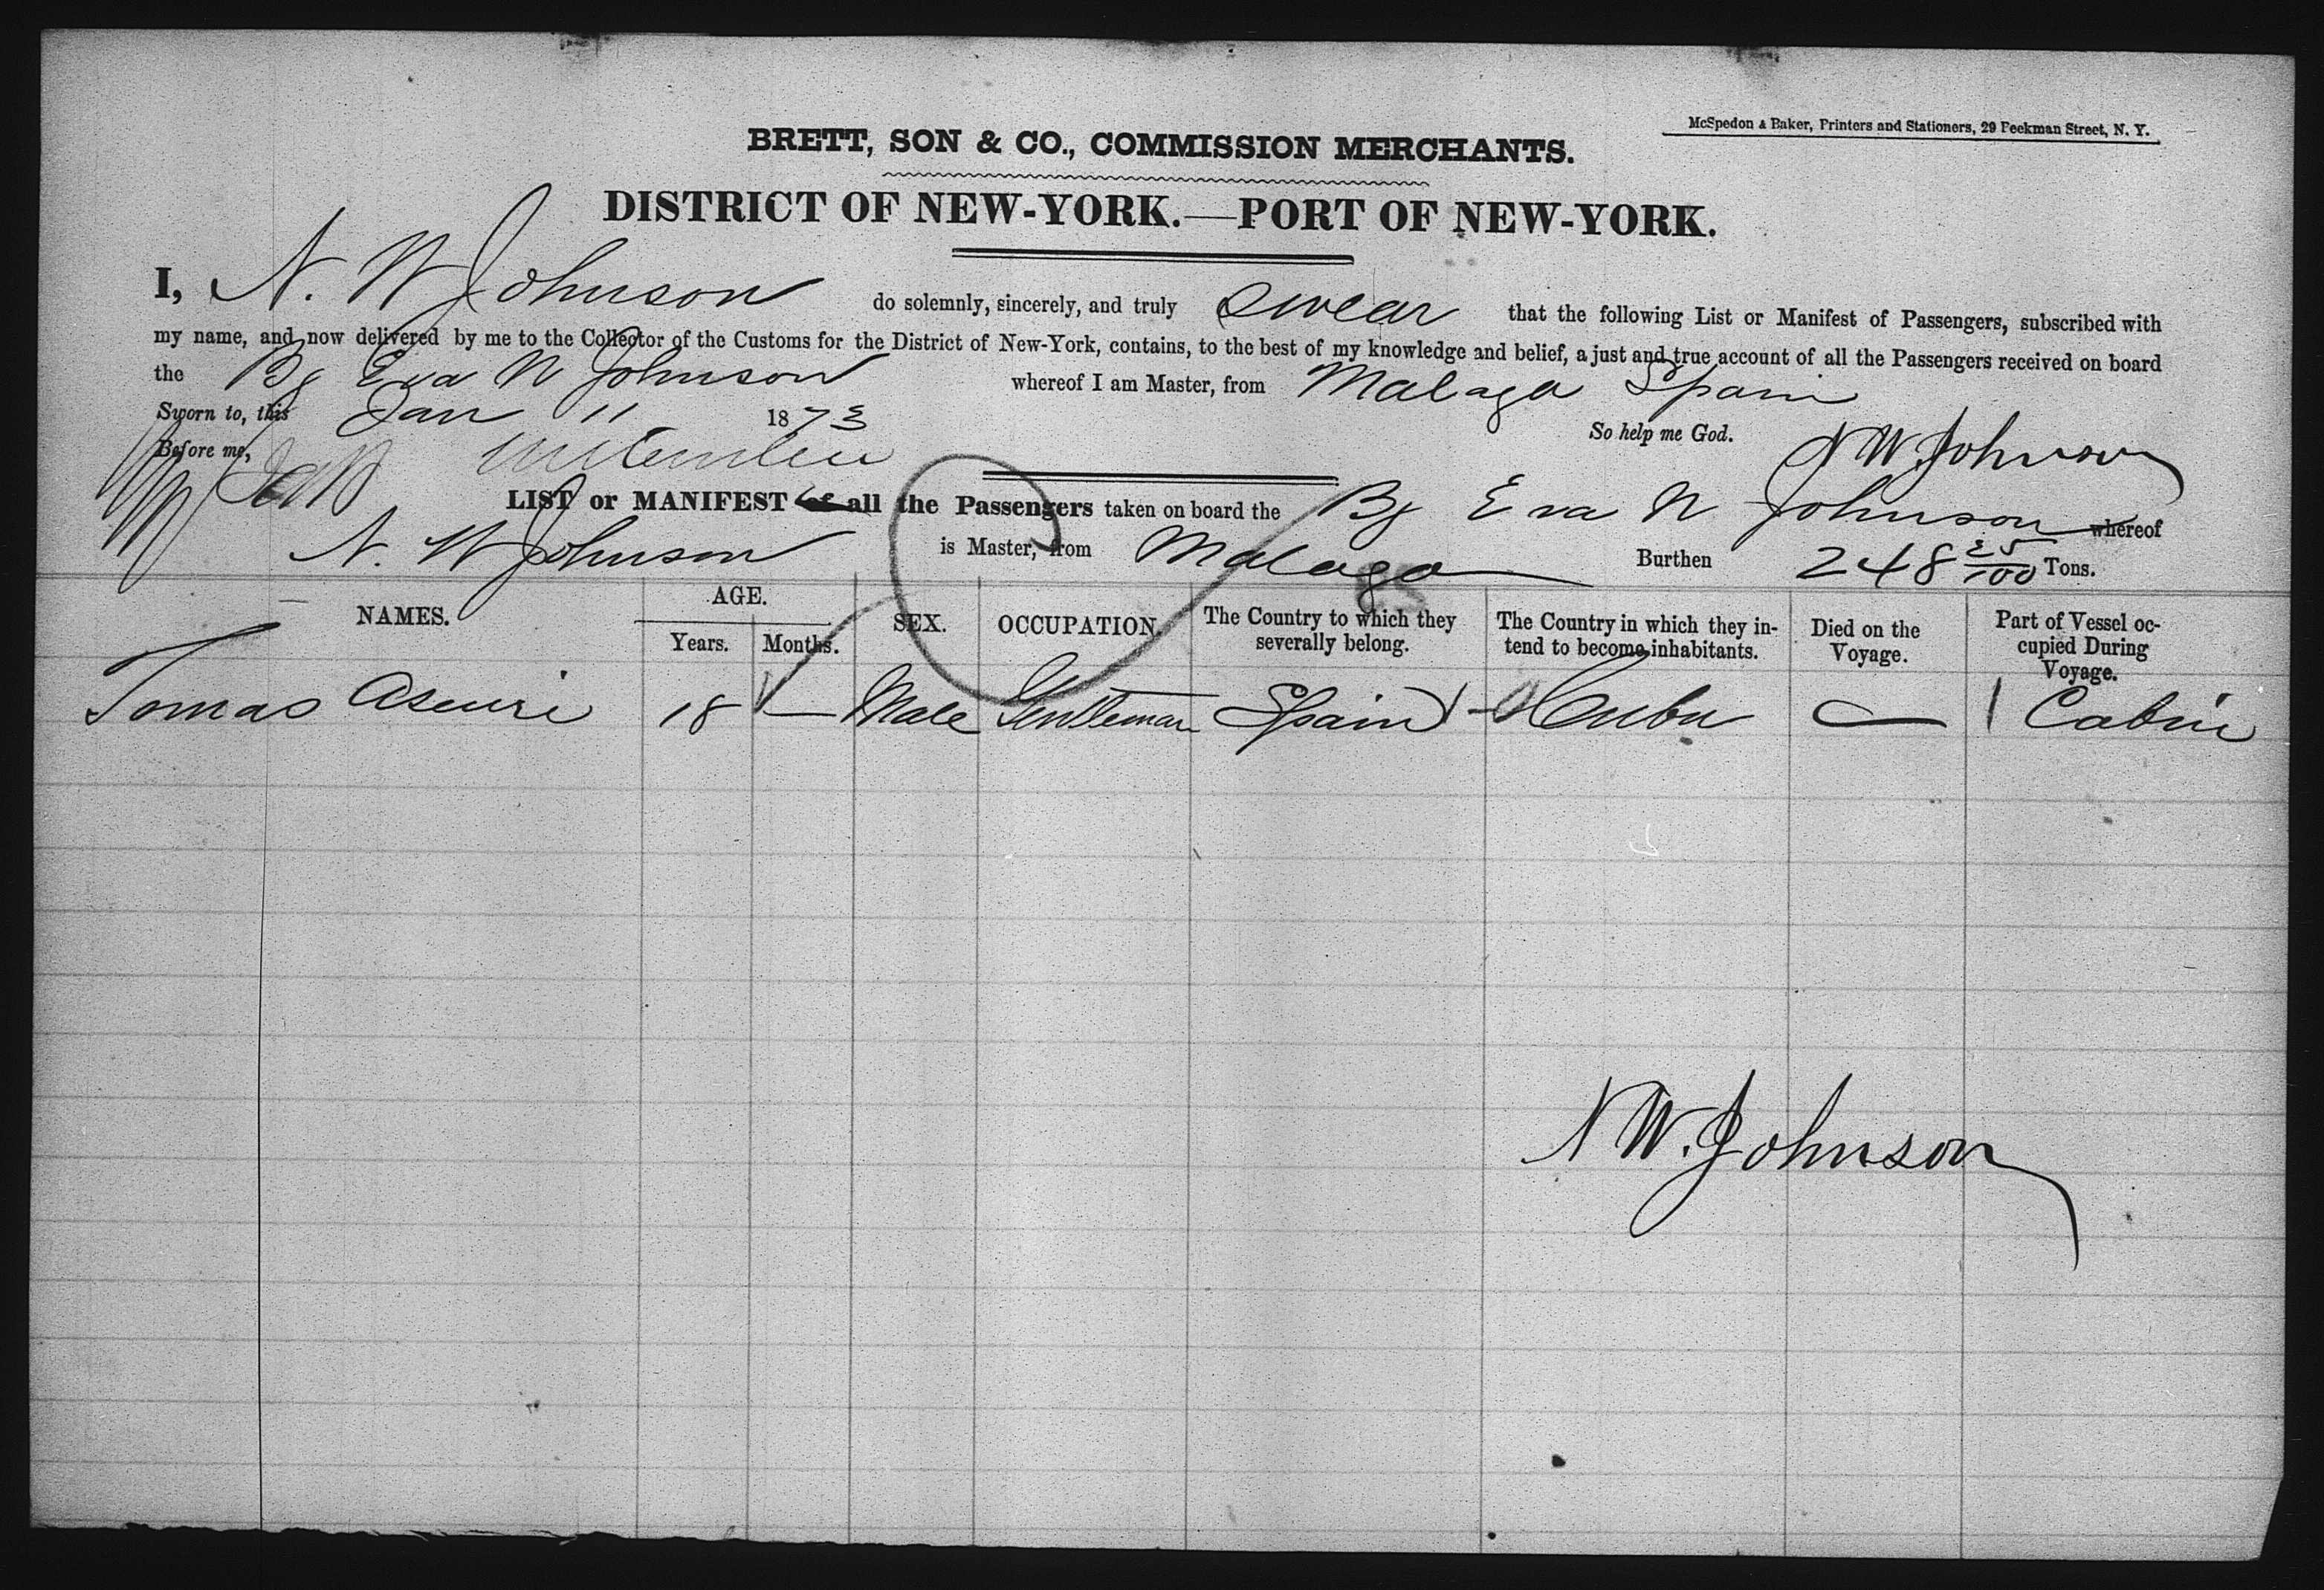 McSpedon & Baker, Printers and Stationers, 29 Beekman Street, N. Y.
BRETT, SON & CO., COMMISSION MERCHANTS.
DISTRICT OF NEW-YORK.—PORT OF NEW-YORK.
I, N. W Johnson do solemnly, sincerely, and truly swear that the following List or Manifest of Passengers, subscribed with
my name, and now delivered by me to the Collector of the Customs for the District of New-York, contains, to the best of my knowledge and belief, a just and true account of all the Passengers received on board
the Bg Eva N Johnson whereof I am Master, from Malaga Spain
Sworn to, this Jan 11 1873 So help me God. N W. Johnson
Before me,
LIST or MANIFEST of all the Passengers taken on board the Bg Eva N Johnson whereof
N. W Johnson is Master, from Malaga Burthen 248 25/100 Tons.
NAMES. AGE. Years. Months. SEX. OCCUPATION. The Country to which they severally belong. The Country in which they intend to become inhabitants. Died on the Voyage. Part of Vessel occupied During Voyage.
Tomas 18 — Male Gentleman Spain Cuba — Cabin
N W. Johnson